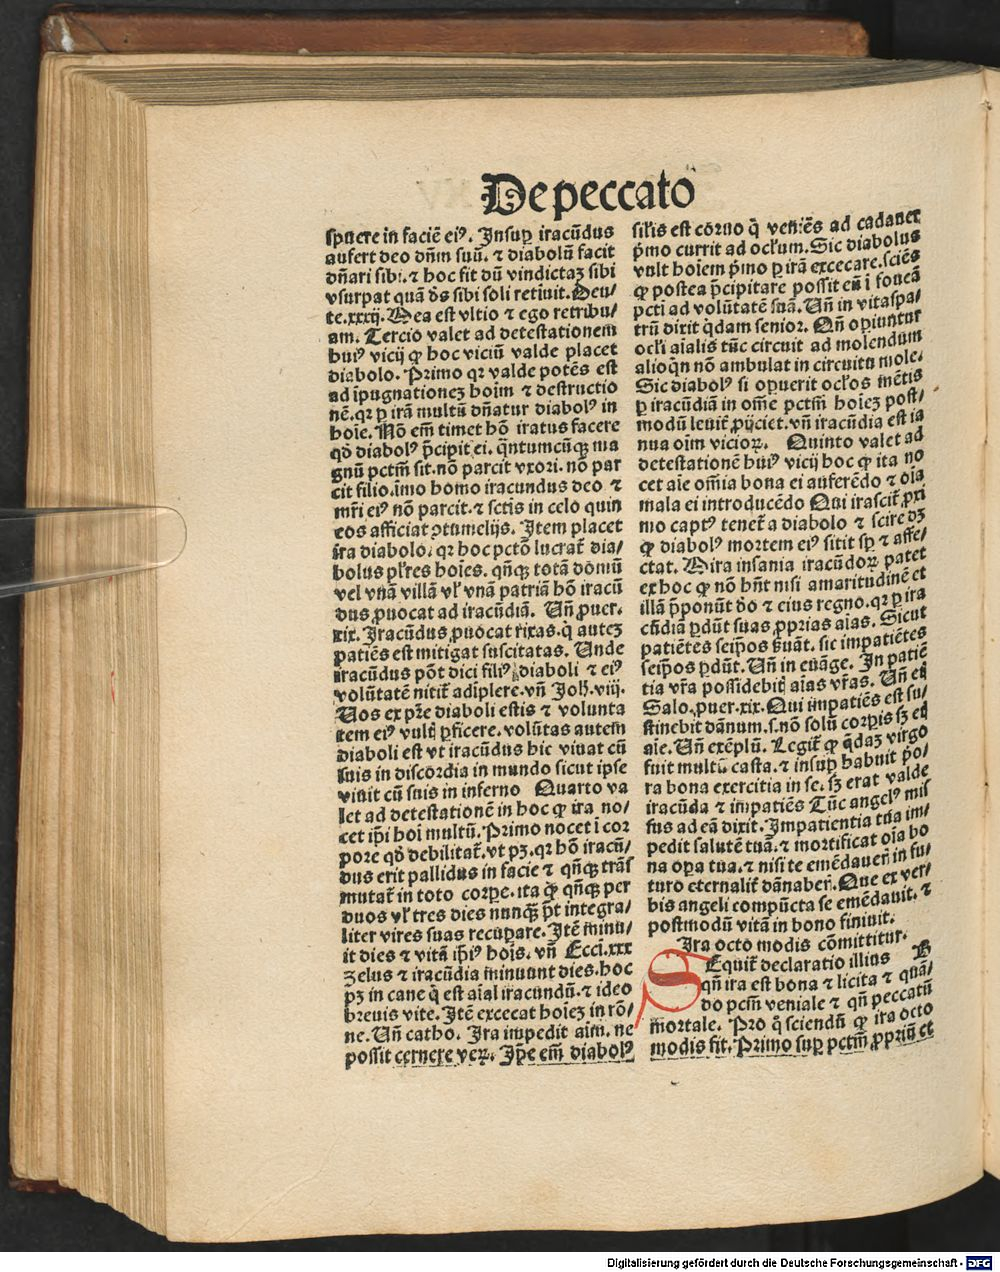 De peccato
spuere in faciē eiꝰ. Insuꝑ iracūdus
aufert deo dn̄m suū. ⁊ diabolū facit
dn̄ari sibi. ⁊ hoc fit dū vindictaꝫ sibi
vsurpat quā ds̄ sibi soli retinuit. Deu/
te.xxxij. Mea est vltio ⁊ ego retribu/
am. Tercio valet ad detestationem
huiꝰ vicij ꝙ hoc viciū valde placet
diabolo. Primo qꝛ valde potēs est
ad īpugnationeꝫ hoīm ⁊ destructio
nē. qꝛ ꝑ irā multū dn̄atur diabolꝰ in
hoīe. Nō em̄ timet hō iratus facere
qd̄ diabolꝰ p̄cipit ei. qn̄tumcūqꝫ ma
gnū pctm̄ sit. nō parcit vxori. nō par
cit filio. īmo homo iracundus deo ⁊
mr̄i eiꝰ nō parcit. ⁊ sctis in celo quin
eos afficiat ꝯtumelijs. Item placet
ira diabolo. qꝛ hoc pctō lucrat̄ dia/
bolus pl̄res hoīes. qn̄qꝫ totā domū
vel vnā villā vl̄ vnā patriā hō iracū
dus ꝓuocat ad iracūdiā. Un̄ ꝓuer.
xix. Iracūdus ꝓuocat rixas. q̄ auteꝫ
patiēs est mitigat suscitatas. Unde
iracūdus pōt dici filiꝰ diaboli ⁊ eiꝰ
volūtatē nitit̄ adīplere. vn̄ Joh̄. viij.
Uos ex pr̄e diaboli estis ⁊ volunta
tem eiꝰ vultꝭ ꝑficere. volūtas autem
diaboli est vt iracūdus hic viuat cū
suis in discordia in mundo sicut ipse
viuit cū suis in inferno Quarto va
let ad detestationē in hoc ꝙ ira no/
cet ip̄i hoī multū. Primo nocet ī cor
pore qd̄ debilitat̄. vt pꝫ. qꝛ hō iracū/
dus erit pallidus in facie ⁊ qn̄qꝫ trās
mutat̄ in toto corpe. ita ꝙ qn̄qꝫ per
duos vl̄ tres dies nunqꝫ pōt integra/
liter vires suas recuꝑare. Itē minu/
it dies ⁊ vitā ip̄iꝰ hoīs. vn̄ Eccī.xxx
zelus ⁊ iracūdia minuunt dies. hoc
pꝫ in cane q̄ est aīal iracundū. ⁊ ideo
breuis vite. Itē excecat hoīeꝫ in rō/
ne. Un̄ catho. Ira impedit aīm. ne
possit cernere veꝝ. Ip̄e em̄ diabolꝰ
silis est coruo q̄ veniēs ad cadauer
p̄mo currit ad ocl̄um. Sic diabolus
vult hoīem p̄mo ꝑ irā excecare. sciēs
ꝙ postea p̄cipitare possit eū ī foueā
pcti ad volūtatē suā. Un̄ in vitaspa/
trū dixit q̄dam senior. Qn̄ oꝑiuntur
ocl̄i aīalis tūc circuit ad molendum
alioqn̄ nō ambulat in circuitu mole.
Sic diabolꝰ si oꝑuerit ocl̄os mētis
ꝑ iracūdiā in om̄e pctm̄ hoīeꝫ post/
modū leuit̄ ꝓijciet. vn̄ iracūdia est ia
nua oīm vicioꝝ. Quinto valet ad
detestationē huiꝰ vicij hoc ꝙ ita no
cet aīe om̄ia bona ei auferēdo ⁊ oīa
mala ei introducēdo Qui irascit̄ ꝓxi
mo captꝰ tenet̄ a diabolo ⁊ scire dꝫ
ꝙ diabolꝰ mortem eiꝰ sitit sꝑ ⁊ affe/
ctat. Mira insania iracūdoꝝ patet
ex hoc ꝙ nō hn̄t nisi amaritudinē et
illā p̄ponūt dō ⁊ eius regno. qꝛ ꝑ ira
cūdiā ꝑdūt suas ꝓprias aīas. Sicut
patiētes seip̄os s̄uāt. sic impatiētes
seip̄os ꝑdūt. Un̄ in euāge. In patiē
tia vr̄a possidebitꝭ aīas vr̄as. Un̄ et̄
Salo. ꝓuer.xix. Qui impatiēs est su/
stinebit dānum. s. nō solū corpis sꝫ et̄
aīe. Un̄ exēplū. Legit̄ ꝙ q̄daꝫ virgo
fuit multū casta. ⁊ insuꝑ habuit plo/
ra bona exercitia in se. sꝫ erat valde
iracūda ⁊ impatiēs Tūc angelꝰ mis
sus ad eā dixit. Impatientia tua im/
pedit salutē tuā. ⁊ mortificat oīa bo
na oꝑa tua. ⁊ nisi te emēdauer̄ in fu/
turo eternalit̄ dānaber̄. Que ex ver/
bis angeli compūcta se emēdauit. ⁊
postmodū vitā in bono finiuit.
Ira octo modis cōmittitur.
SEquit̄ declaratio illius B
qn̄ ira est bona ⁊ licita ⁊ quā/
do pcm̄ veniale ⁊ qn̄ peccatū
mortale. Pro q̄ sciendū ꝙ ira octo
modis fit. Primo suꝑ pctm̄ ꝓpriū et
Digitalisierung gefördert durch die Deutsche Forschungsgemeinschaft - DFG